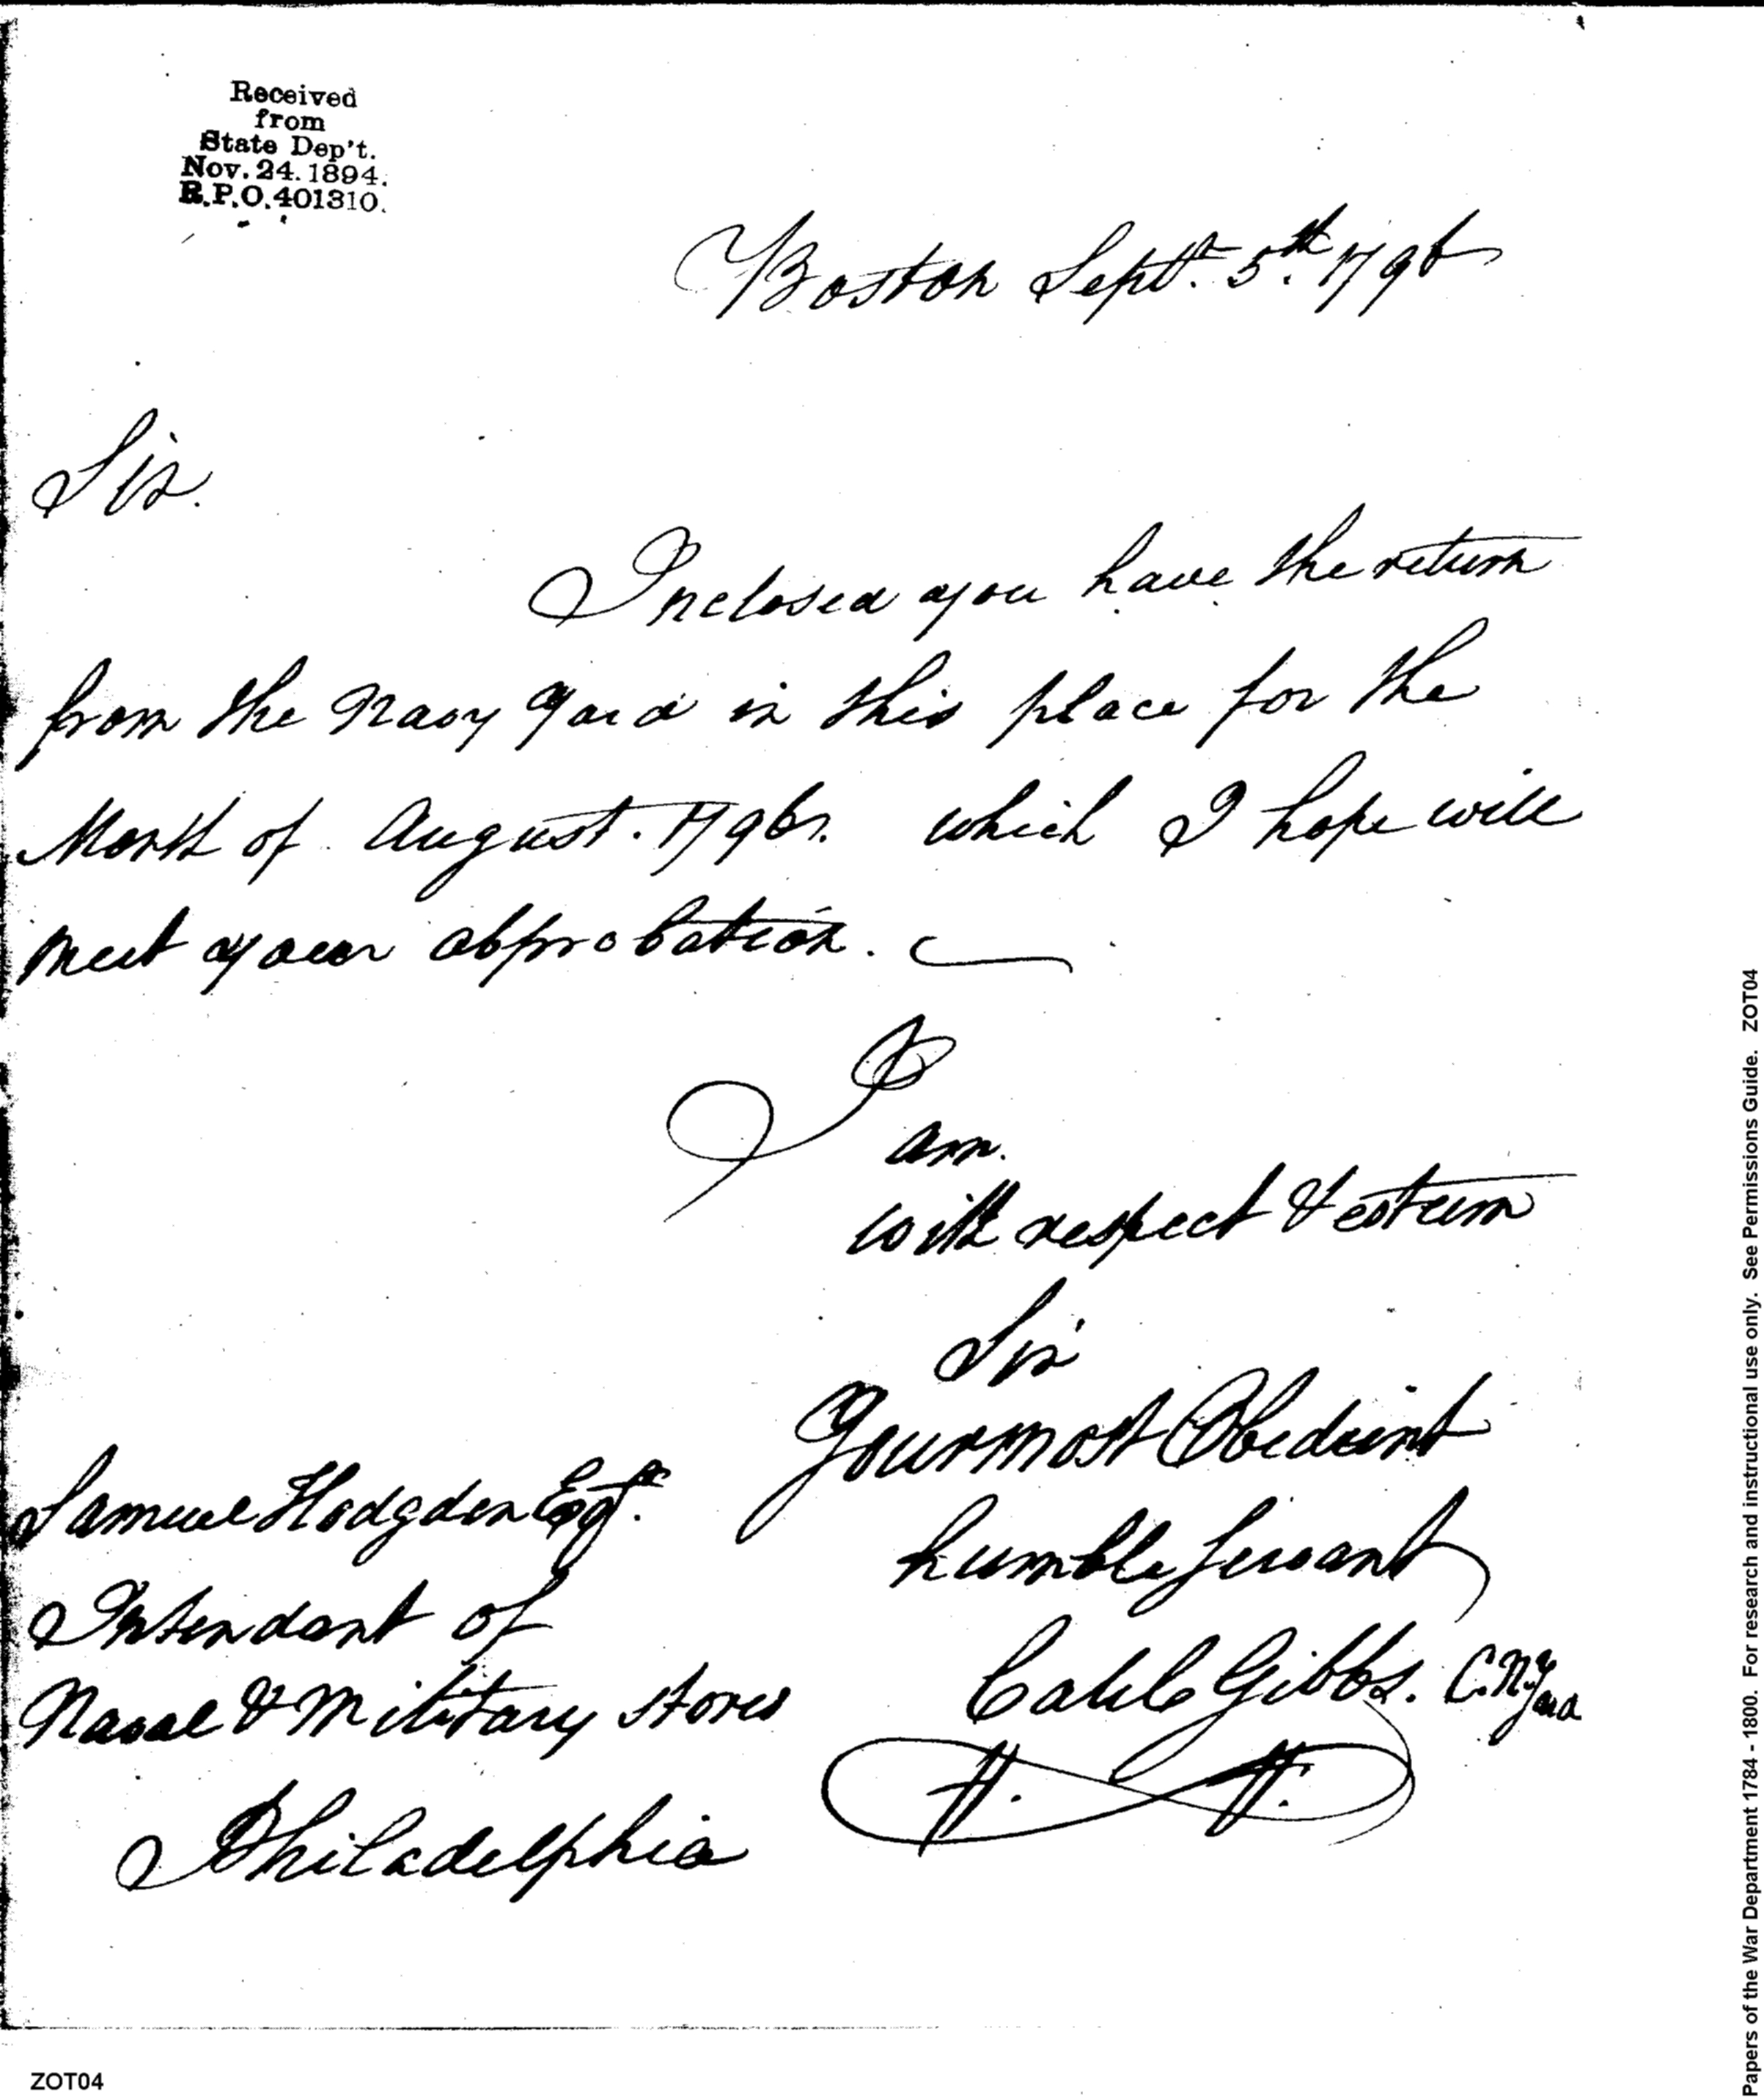 Received
from
State Dep't.
Nov. 24. 1894.
R.P.O. 401310.
Boston Sept. 5th. 1796
Sir.
Inclosed you have the return
from the Navy Yard in this place for the
Month of August. 1796. which I hope will
meet your approbation.
I
am.
with respect & esteem
Sir
Your most Obedient
humble Servant
Caleb Gibbs. C.N.Yard
Samuel Hodgden Esqr.
Intendant of
Naval & Military Stores
Philadelphia
ZOT04
Papers of the War Department 1784 - 1800. For research and instructional use only. See Permissions Guide. ZOT04